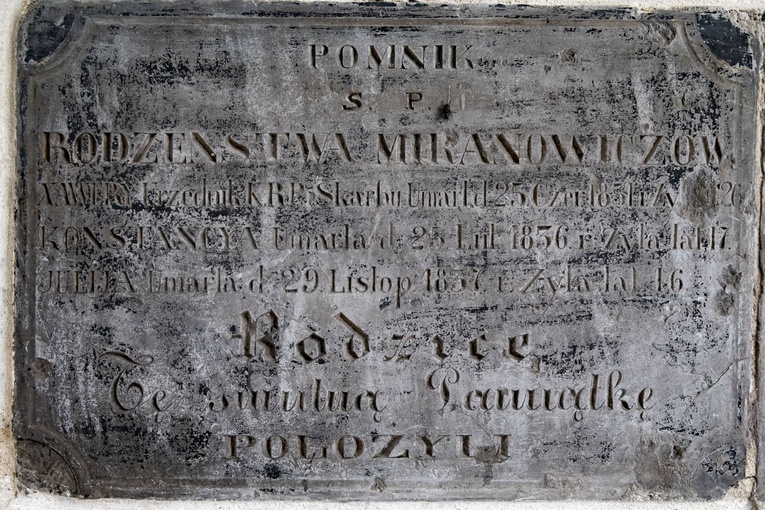 POMNIK
S. P.
RODZENSTWA MIRANOWICZOW
XAWERY Urzednik K.R.P. i Skarbu Umarł d. 25 Czer. 1831 r. Zy 26
KONSTANCYA Umarła d. 25 Lut. 1836 r. Zyła lat 17.
JULIJA Umarła d. 29 Listop. 1837 r. Zyła lat 16.
Rodzice
Tę smutną Pamiątkę
POŁOZYLI